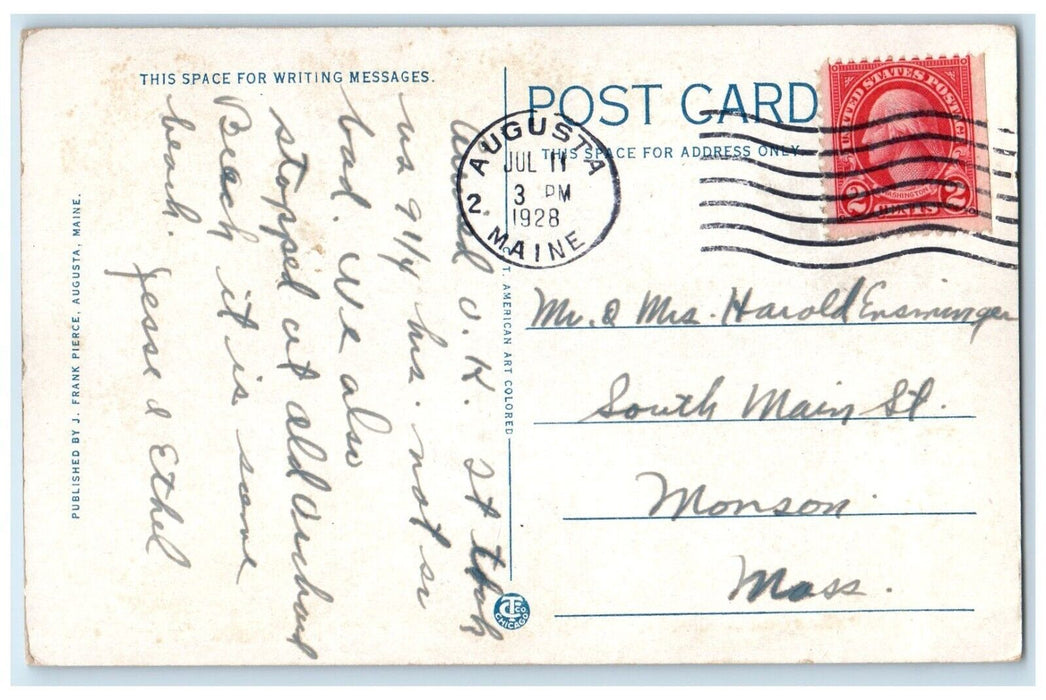 THIS SPACE FOR WRITING MESSAGES.
POST CARD
THIS SPACE FOR ADDRESS ONLY.
UNITED STATES POSTAGE
WASHINGTON
2 CENTS 2
AUGUSTA
JUL 11
3 PM
1928
2
MAINE
Arrived O.K. It took
us 9 1/4 hrs. not so
bad. We also
stopped at old Orchard
Beach it is some
beach.
Jesse & Ethel
Mr. & Mrs. Harold Ensminger
South Main St.
Monson
Mass.
PUBLISHED BY J. FRANK PIERCE, AUGUSTA, MAINE.
C. T. AMERICAN ART COLORED
CT CO
CHICAGO